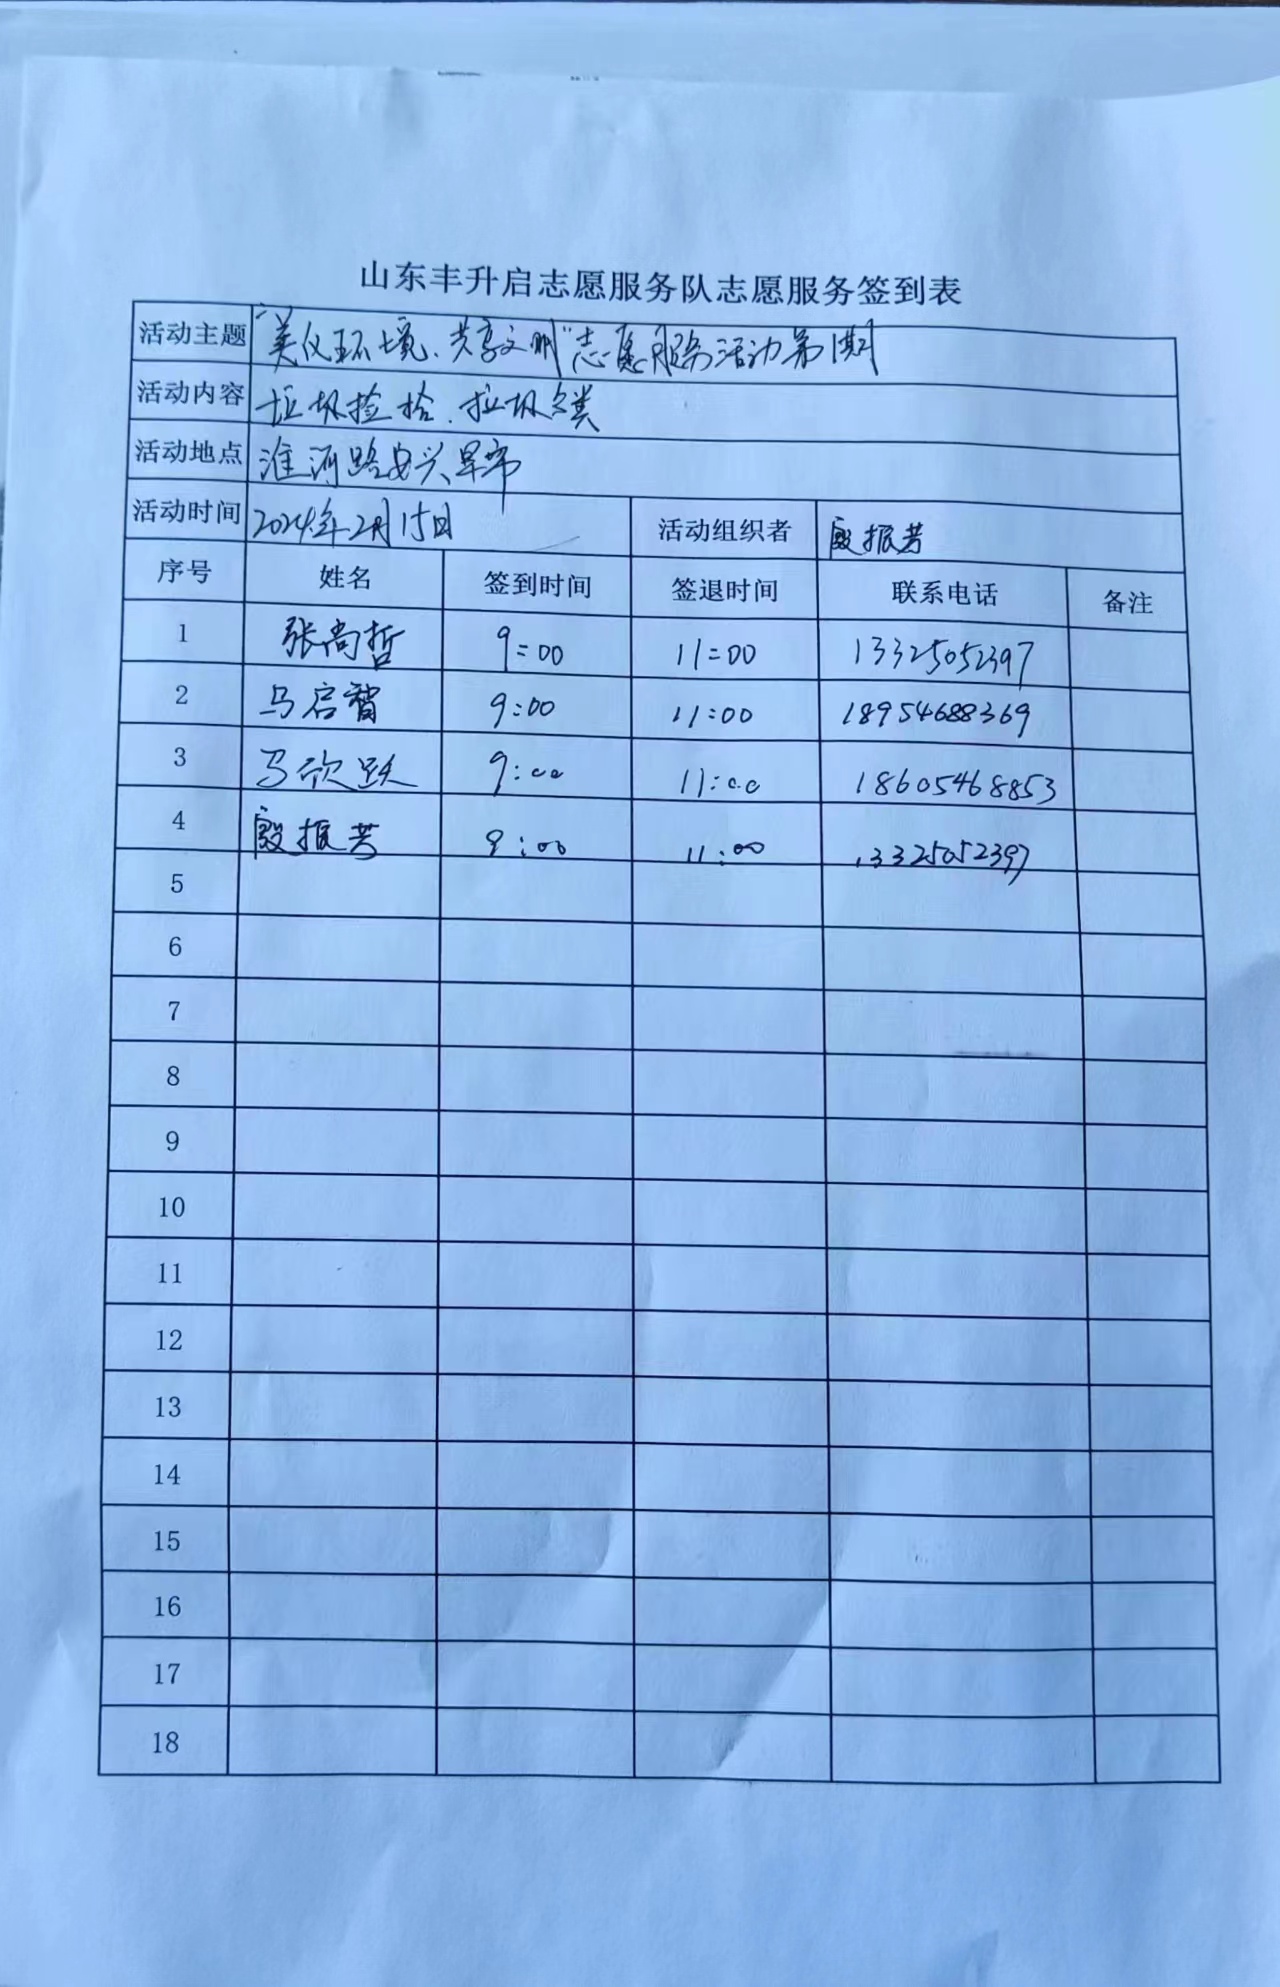 山东丰升启志愿服务队志愿服务签到表
活动主题 "美化环境、共享文明"志愿服务活动第1期
活动内容 垃圾捡拾、垃圾分类
活动地点 淮河路安兴早市
活动时间 2024年2月15日 活动组织者 殷振芳
序号 姓名 签到时间 签退时间 联系电话 备注
1 张尚哲 9:00 11:00 13325052397
2 马启智 9:00 11:00 18954688369
3 马欣跃 9:00 11:00 18605468853
4 殷振芳 9:00 11:00 13325052397
5
6
7
8
9
10
11
12
13
14
15
16
17
18